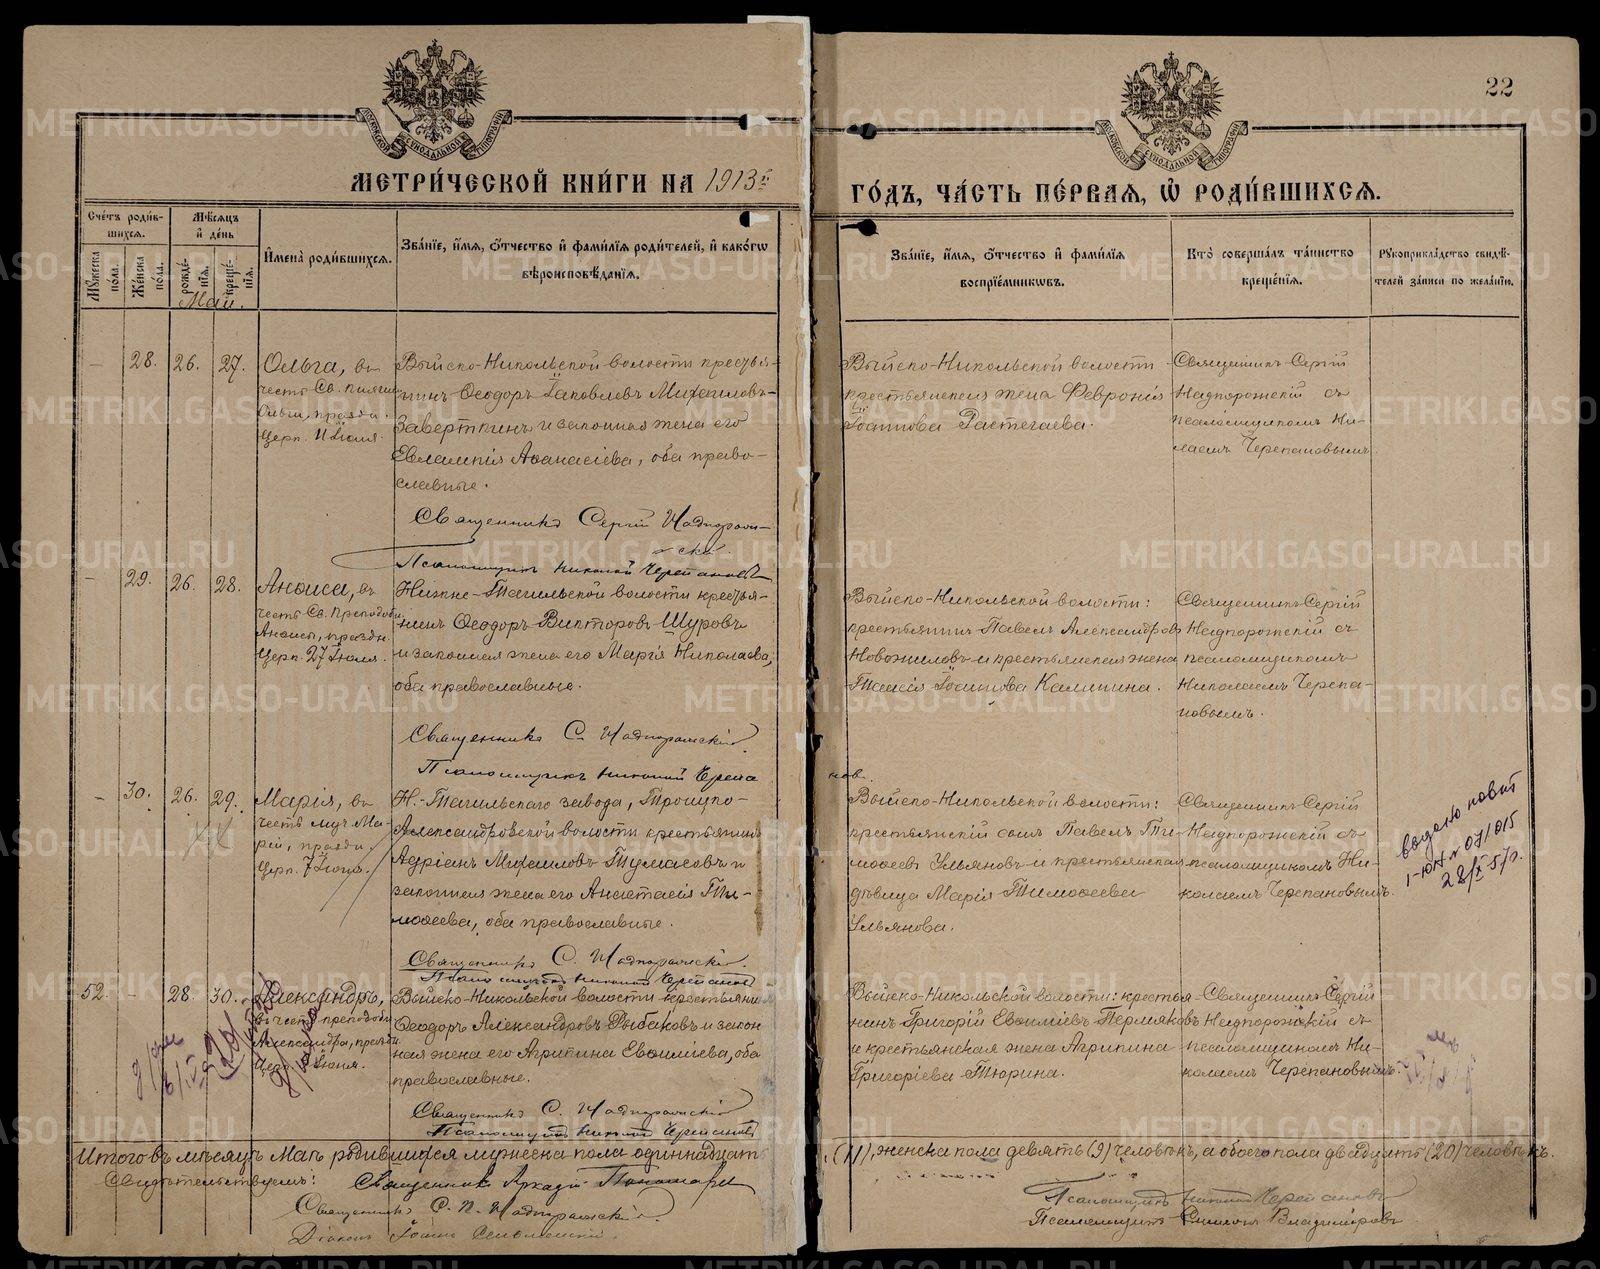 22
МОСКОВСКОЙ СѴНОДАЛЬНОЙ ТИПОГРАФІИ
МОСКОВСКОЙ СѴНОДАЛЬНОЙ ТИПОГРАФІИ
МЕТРИ́ЧЕСКОЙ КНИ́ГИ НА 1913 г.
ГО́ДЪ, ЧА́СТЬ ПЕ́РВАЯ, Ѡ҆ РОДИ́ВШИХСЯ.
Сче́тъ роди́в-
шихся.
Мꙋ́жеска по́ла.
Же́нска по́ла.
Мѣ́сяцъ
и҆ де́нь
рожде́-
нїя.
креще́-
нїя.
И҆мена̀ роди́вшихся.
Зва́нїе, и҆́мя, ѻ҆́тчество и҆ фами́лїя роди́телей, и҆ како́гѡ
вѣроисповѣ́данїя.
Зва́нїе, и҆́мя, ѻ҆́тчество и҆ фами́лїя
воспрїе́мникѡвъ.
Кто̀ соверша́лъ та́инство
креще́нїя.
Рꙋкоприкла́дство свидѣ́-
телей за́писи по жела́нїю.
Май.
– 28. 26. 27.
Ольга, въ
честь Св. Княгин.
Ольги, праздн.
церк. 11 Іюля.
Выйско-Никольской волости крестья-
нинъ Ѳеодоръ Іаковлевъ Михаиловъ-
Заверткинъ и законная жена его
Евлампія Аѳанасіева, оба право-
славные.
Священникъ Сергій Надпорож-
скій.
Псаломщикъ Николай Черепановъ
Выйско-Никольской волости
крестьянская жена Февронія
Іоаннова Растегаева.
Священникъ Сергій
Надпорожскій съ
псаломщикомъ Ни-
лаемъ Черепановымъ
– 29. 26. 28.
Анѳиса, въ
честь Св. Преподобн.
Анѳисы, праздн.
церк. 27 Іюля.
Нижне-Тагильской волости крестья-
нинъ Ѳеодоръ Викторовъ Щуровъ
и законная жена его Марія Николаева,
оба православные.
Священникъ С. Надпорожскій.
Псаломщикъ Николай Черепа
нов.
Выйско-Никольской волости:
крестьянинъ Павелъ Александровъ
Новожиловъ и крестьянская жена
Таисія Іоаннова Калинина.
Священникъ Сергій
Надпорожскій съ
псаломщикомъ
Николаемъ Черепа-
новымъ.
– 30. 26. 29.
Марія, въ
честь муч. Ма-
ріи, праздн.
церк. 7 Іюня.
Н.-Тагильскаго завода, Троицко-
Александровской волости крестьянинъ
Адріанъ Михаиловъ Тумасовъ и
законная жена его Анастасія Ти-
моѳеева, оба православные.
Священникъ С. Надпорожскій.
Псаломщикъ Николай Черепановъ
Выйско-Никольской волости:
крестьянскій сынъ Павелъ Ти-
моѳеевъ Ульяновъ и крестьянская
дѣвица Марія Тимоѳеева
Ульянова.
Священникъ Сергій
Надпорожскій съ
псаломщикомъ Ни-
колаемъ Черепановымъ.
28/X-57г.
52. – 28. 30.
Александръ,
въ честь преподобн.
Александра, праздн.
Іюня.
Выйско-Никольской волости крестьянинъ
Ѳеодоръ Александровъ Рыбаковъ и закон
ная жена его Агрипина Евѳиміева, оба
православные.
Священникъ С. Надпорожскій
Псаломщикъ Николай Черепановъ
Выйско-Никольской волости: крестья-
нинъ Григорій Евѳиміевъ Пермяковъ
и крестьянская жена Агрипина
Григоріева Тюрина.
Священникъ Сергій
Надпорожскій съ
псаломщикомъ Ни-
колаемъ Черепановымъ.
Итого въ мѣсяцѣ Маѣ родившихся мужеска пола одиннадцать (11), женска пола девять (9) человѣкъ, а обоего пола двадцать (20) человѣкъ.
Свидѣтельствуемъ: Священникъ Аркадій Пономаревъ
Священникъ С. Н. Надпорожскій.
Діаконъ Іоаннъ
Псаломщикъ Николай Черепановъ
Псаломщикъ Симеонъ Владиміровъ
METRIKI.GASO-URAL.RU